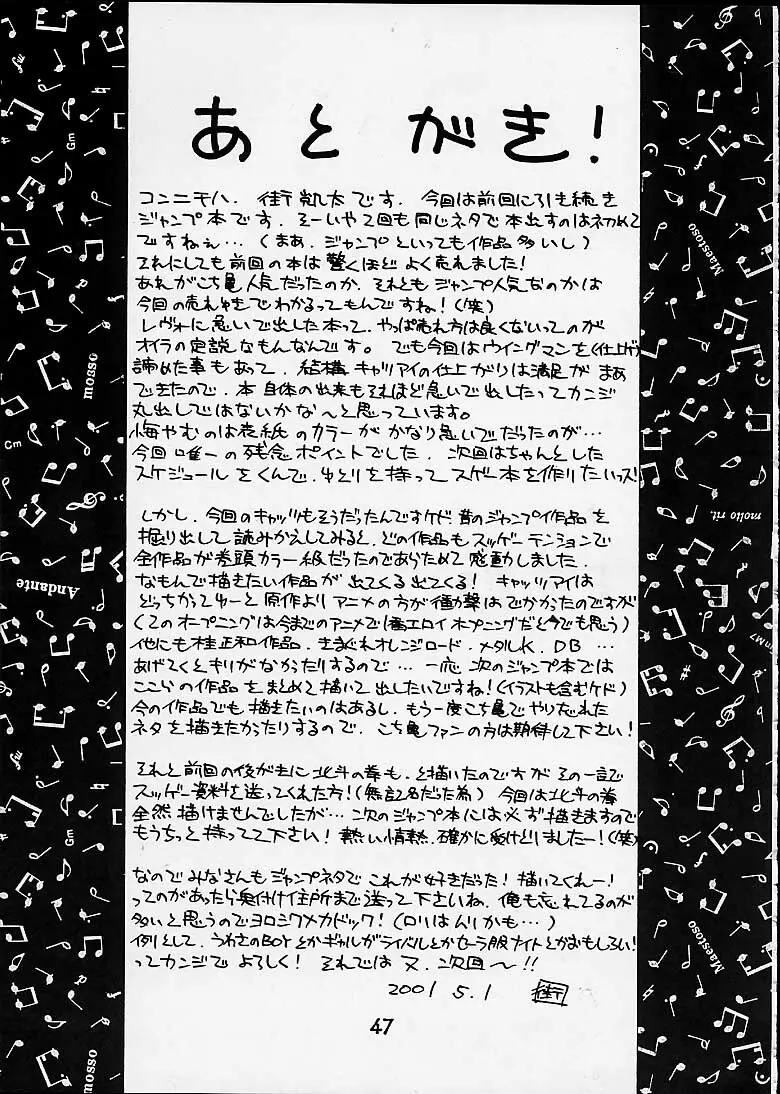 あとがき!
コンニチハ. 街凱太です. 今回は前回に引き続き
ジャンプ本です. そーいや2回も同じネタで本出すのは初めて
ですねぇ…(まあ.ジャンプといっても作品多いし)
それにしても前回の本は驚くほどよく売れました!
あれがこち亀人気だったのか.それともジャンプ人気なのかは
今回の売れゆきでわかるってもんですね!(笑)
レヴォに急いで出した本って.やっぱ売れ方は良くないってのが
オイラの定説なもんなんです。でも今回はウイングマンを(仕上げ)
諦めた事もあって.結構キャッツアイの仕上がりは満足がまあ
できたので.本自体の出来もそれほど急いで出したってカンジ
丸出しではないかな〜と思っています。
悔やむのは表紙のカラーがかなり急いでだったのが…
今回唯一の残念ポイントでした.次回はちゃんとした
スケジュールをくんで.ゆとりを持ってスゲー本を作りたいっス!
しかし.今回のキャッツもそうだったんですケド昔のジャンプ作品を
掘り出して読みかえしてみると.どの作品もスッゲーテンションで
全作品が巻頭カラー級だったのであらためて感動しました.
なもんで描きたい作品が出てくる出てくる!キャッツアイは
どっちかってゆーと原作よりアニメの方が衝撃はでかかたのですが
(2のオープニングは今までのアニメで1番エロイオープニングだと今でも思う)
他にも桂正和作品.きまぐれオレンジロード.メタルK.DB…
あげてくとキリがなかったりするので…一応次のジャンプ本では
ここらの作品をまとめて描いて出したいですね!(イラストも含むケド)
今の作品でも描きたいのはあるし.もう一度こち亀でやり忘れた
ネタを描きたかったりするので.こち亀ファンの方は期待して下さい!
それと前回の後がきに北斗の拳も.と描いたのですがその一言で
スッゲー資料を送ってくれた方!(無記名だった為)今回は北斗の拳
全然描けませんでしたが…次のジャンプ本には必ず描きますので
もうちっと持ってて下さい!熱い情熱.確かに受けとりましたー!(笑)
なのでみなさんもジャンプネタでこれが好きだった!描いてくれー!
ってのがあったら奥付け住所まで送って下さいね.俺も忘れてるのが
多いと思うのでヨロシクメカドック!(ロリはムリかも…)
例として.うわさのBOYとかギャルがライバルとかセーラ服ナイトとかがおもしろい!
ってカンジでよろしく!それでは又.次回〜!!
2001 5.1 街
47
Gm
mosso
Cm
Andante
Gm
mosso
Maestoso
molto rit.
Maestoso